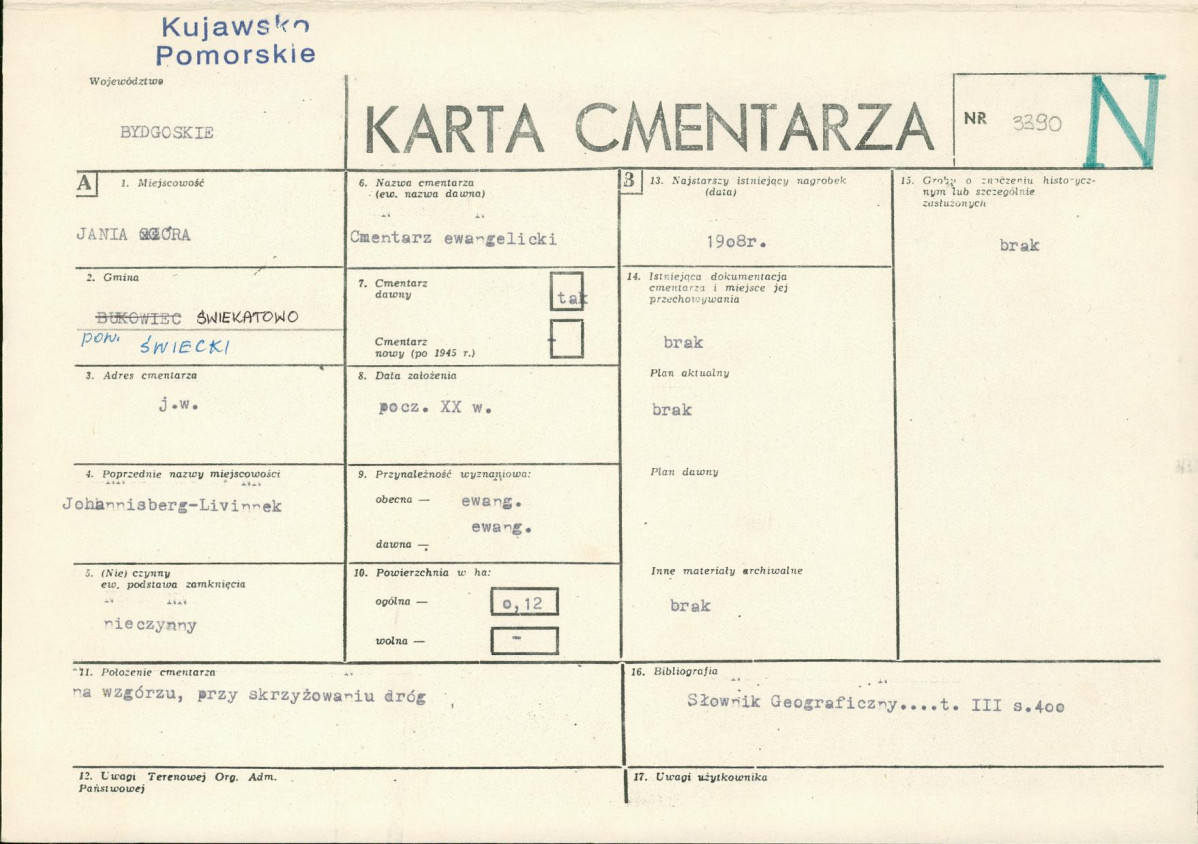 Kujawsko
Pomorskie
Województwo
BYDGOSKIE
KARTA CMENTARZA
NR 3390
N
A
1. Miejscowość
JANIA GÓRA
2. Gmina
BUKOWIEC ŚWIEKATOWO
pow. ŚWIECKI
3. Adres cmentarza
j.w.
4. Poprzednie nazwy miejscowości
Johannisberg-Livinnek
5. (Nie) czynny
ew. podstawa zamknięcia
nieczynny
6. Nazwa cmentarza
(ew. nazwa dawna)
Cmentarz ewangelicki
7. Cmentarz
dawny
tak
Cmentarz
nowy (po 1945 r.)
-
8. Data założenia
pocz. XX w.
9. Przynależność wyznaniowa:
obecna — ewang.
ewang.
dawna —
10. Powierzchnia w ha:
ogólna — o,12
wolna — -
B
13. Najstarszy istniejący nagrobek
(data)
19o8r.
14. Istniejąca dokumentacja
cmentarza i miejsce jej
przechowywania
brak
Plan aktualny
brak
Plan dawny
Inne materiały archiwalne
brak
15. Groby o znaczeniu historycz-
nym lub szczególnie
zasłużonych
brak
11. Położenie cmentarza
na wzgórzu, przy skrzyżowaniu dróg
16. Bibliografia
Słownik Geograficzny....t. III s.4oo
12. Uwagi Terenowej Org. Adm.
Państwowej
17. Uwagi użytkownika